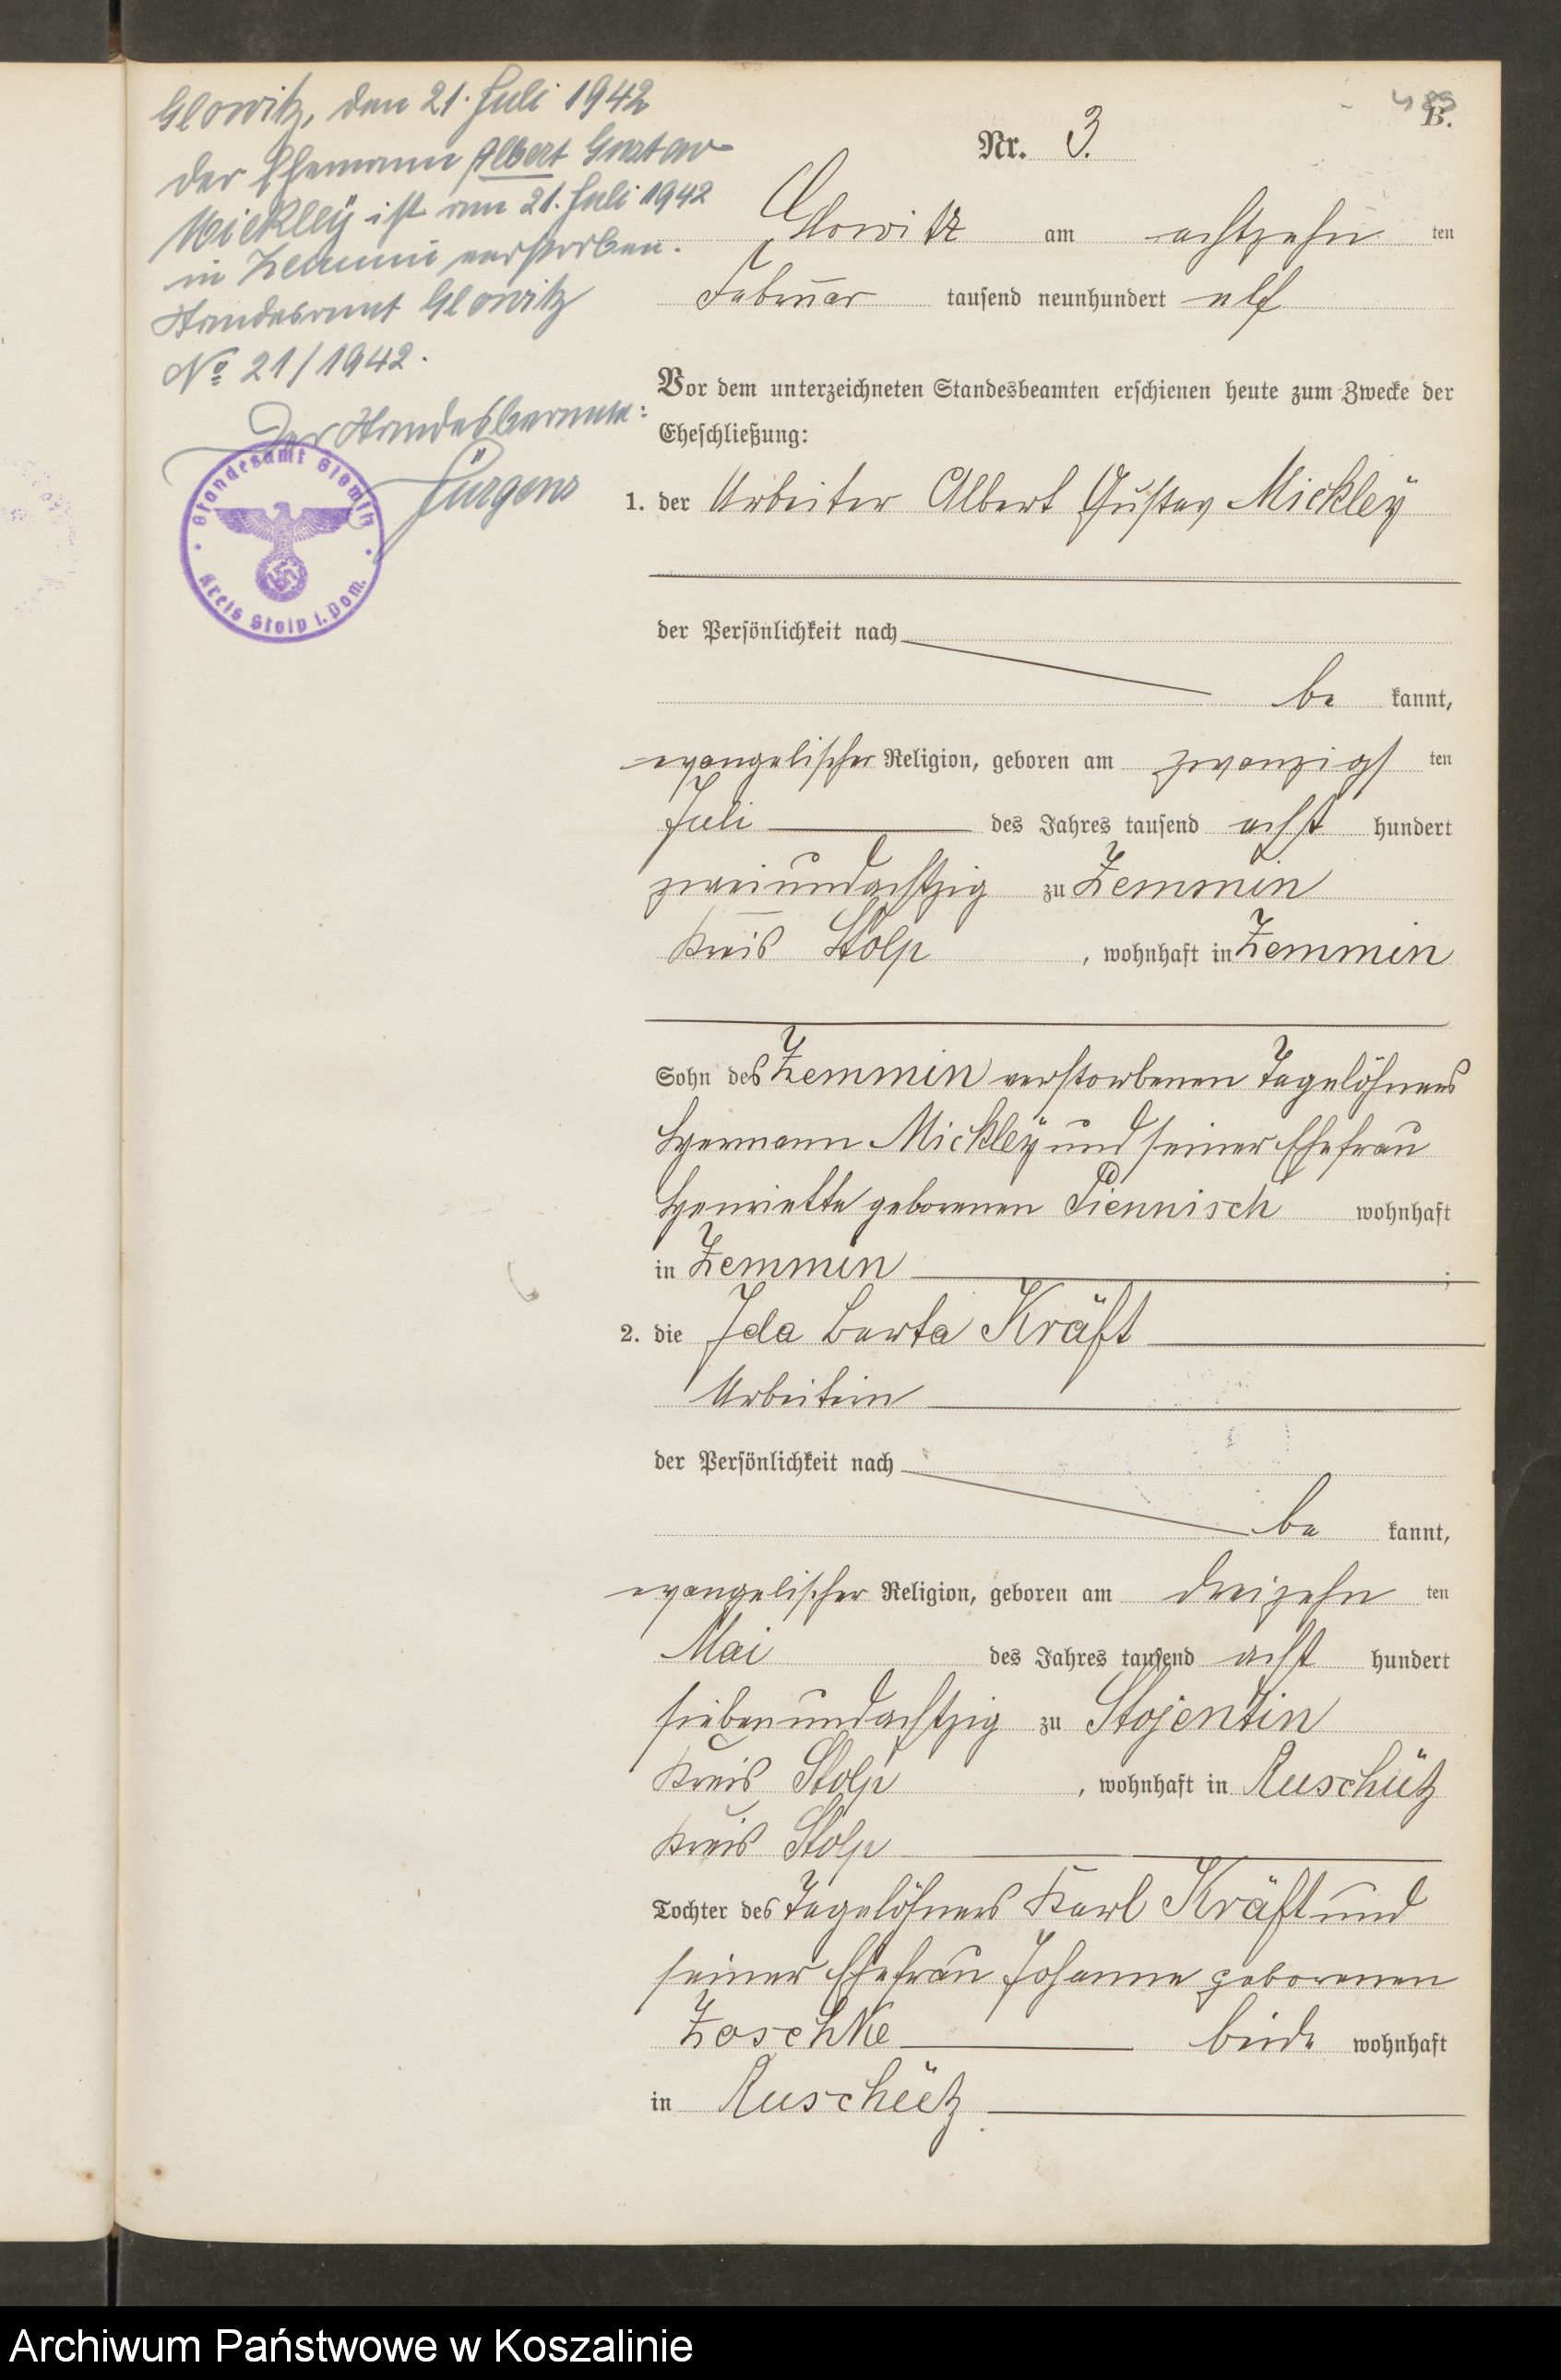 Glowitz, den 21. Juli 1942
Der Ehemann Albert Gustav
Mickleÿ ist am 21. Juli 1942
in Zemmin verstorben.
Standesamt Glowitz
No 21/1942.
Der Standesbeamte:
Jürgens
Standesamt Glowitz
Kreis Stolp i. Pom.
B.
Nr. 3.
Glowitz am achtzehn ten
Februar tausend neunhundert elf
Vor dem unterzeichneten Standesbeamten erschienen heute zum Zwecke der
Eheschließung:
1. der Arbeiter Albert Gustav Mickleÿ
der Persönlichkeit nach
be kannt,
evangelischer Religion, geboren am zwanzigs ten
Juli des Jahres tausend acht hundert
zweiundachtzig zu Zemmin
Kreis Stolp , wohnhaft in Zemmin
Sohn des Zemmin verstorbenen Tagelöhners
Hermann Mickleÿ und seiner Ehefrau
Henriette geborenen Piennisch wohnhaft
in Zemmin ;
2. die Ida Berta Kräft
Arbeiterin
der Persönlichkeit nach
be kannt,
evangelischer Religion, geboren am dreizehn ten
Mai des Jahres tausend acht hundert
siebenundachtzig zu Stojentin
Kreis Stolp , wohnhaft in Ruschütz
Kreis Stolp
Tochter des Tagelöhners Karl Kräft und
seiner Ehefrau Johanne geborenen
Zoschke beide wohnhaft
in Ruschütz
Archiwum Państwowe w Koszalinie